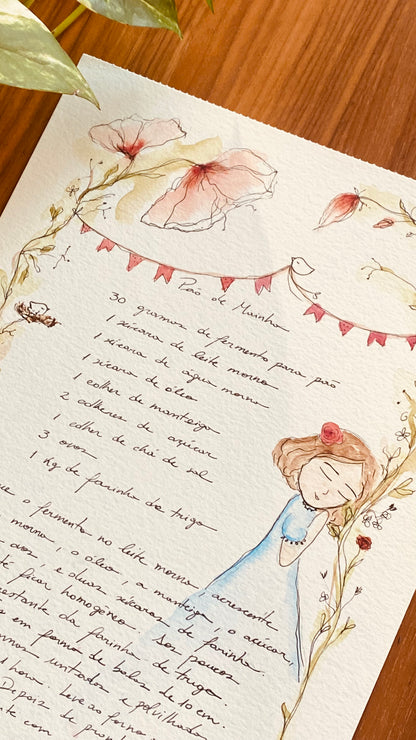 Pão de Mainha
30 gramas de fermento para pão
1 xícara de leite morno
1 xícara de água morna
1 xícara de óleo
1 colher de manteiga
2 colheres de açúcar
1 colher de chá de sal
3 ovos
1 kg de farinha de trigo
o fermento no leite morno, acrescente
morna, o óleo, a manteiga, o açúcar,
ovos, e duas xícaras de farinha.
ficar homogênea. Aos poucos
restante da farinha de trigo.
em forma de bolas de 10 cm.
untadas e polvilhada
1 hora. Leve ao forno
Depois de
com